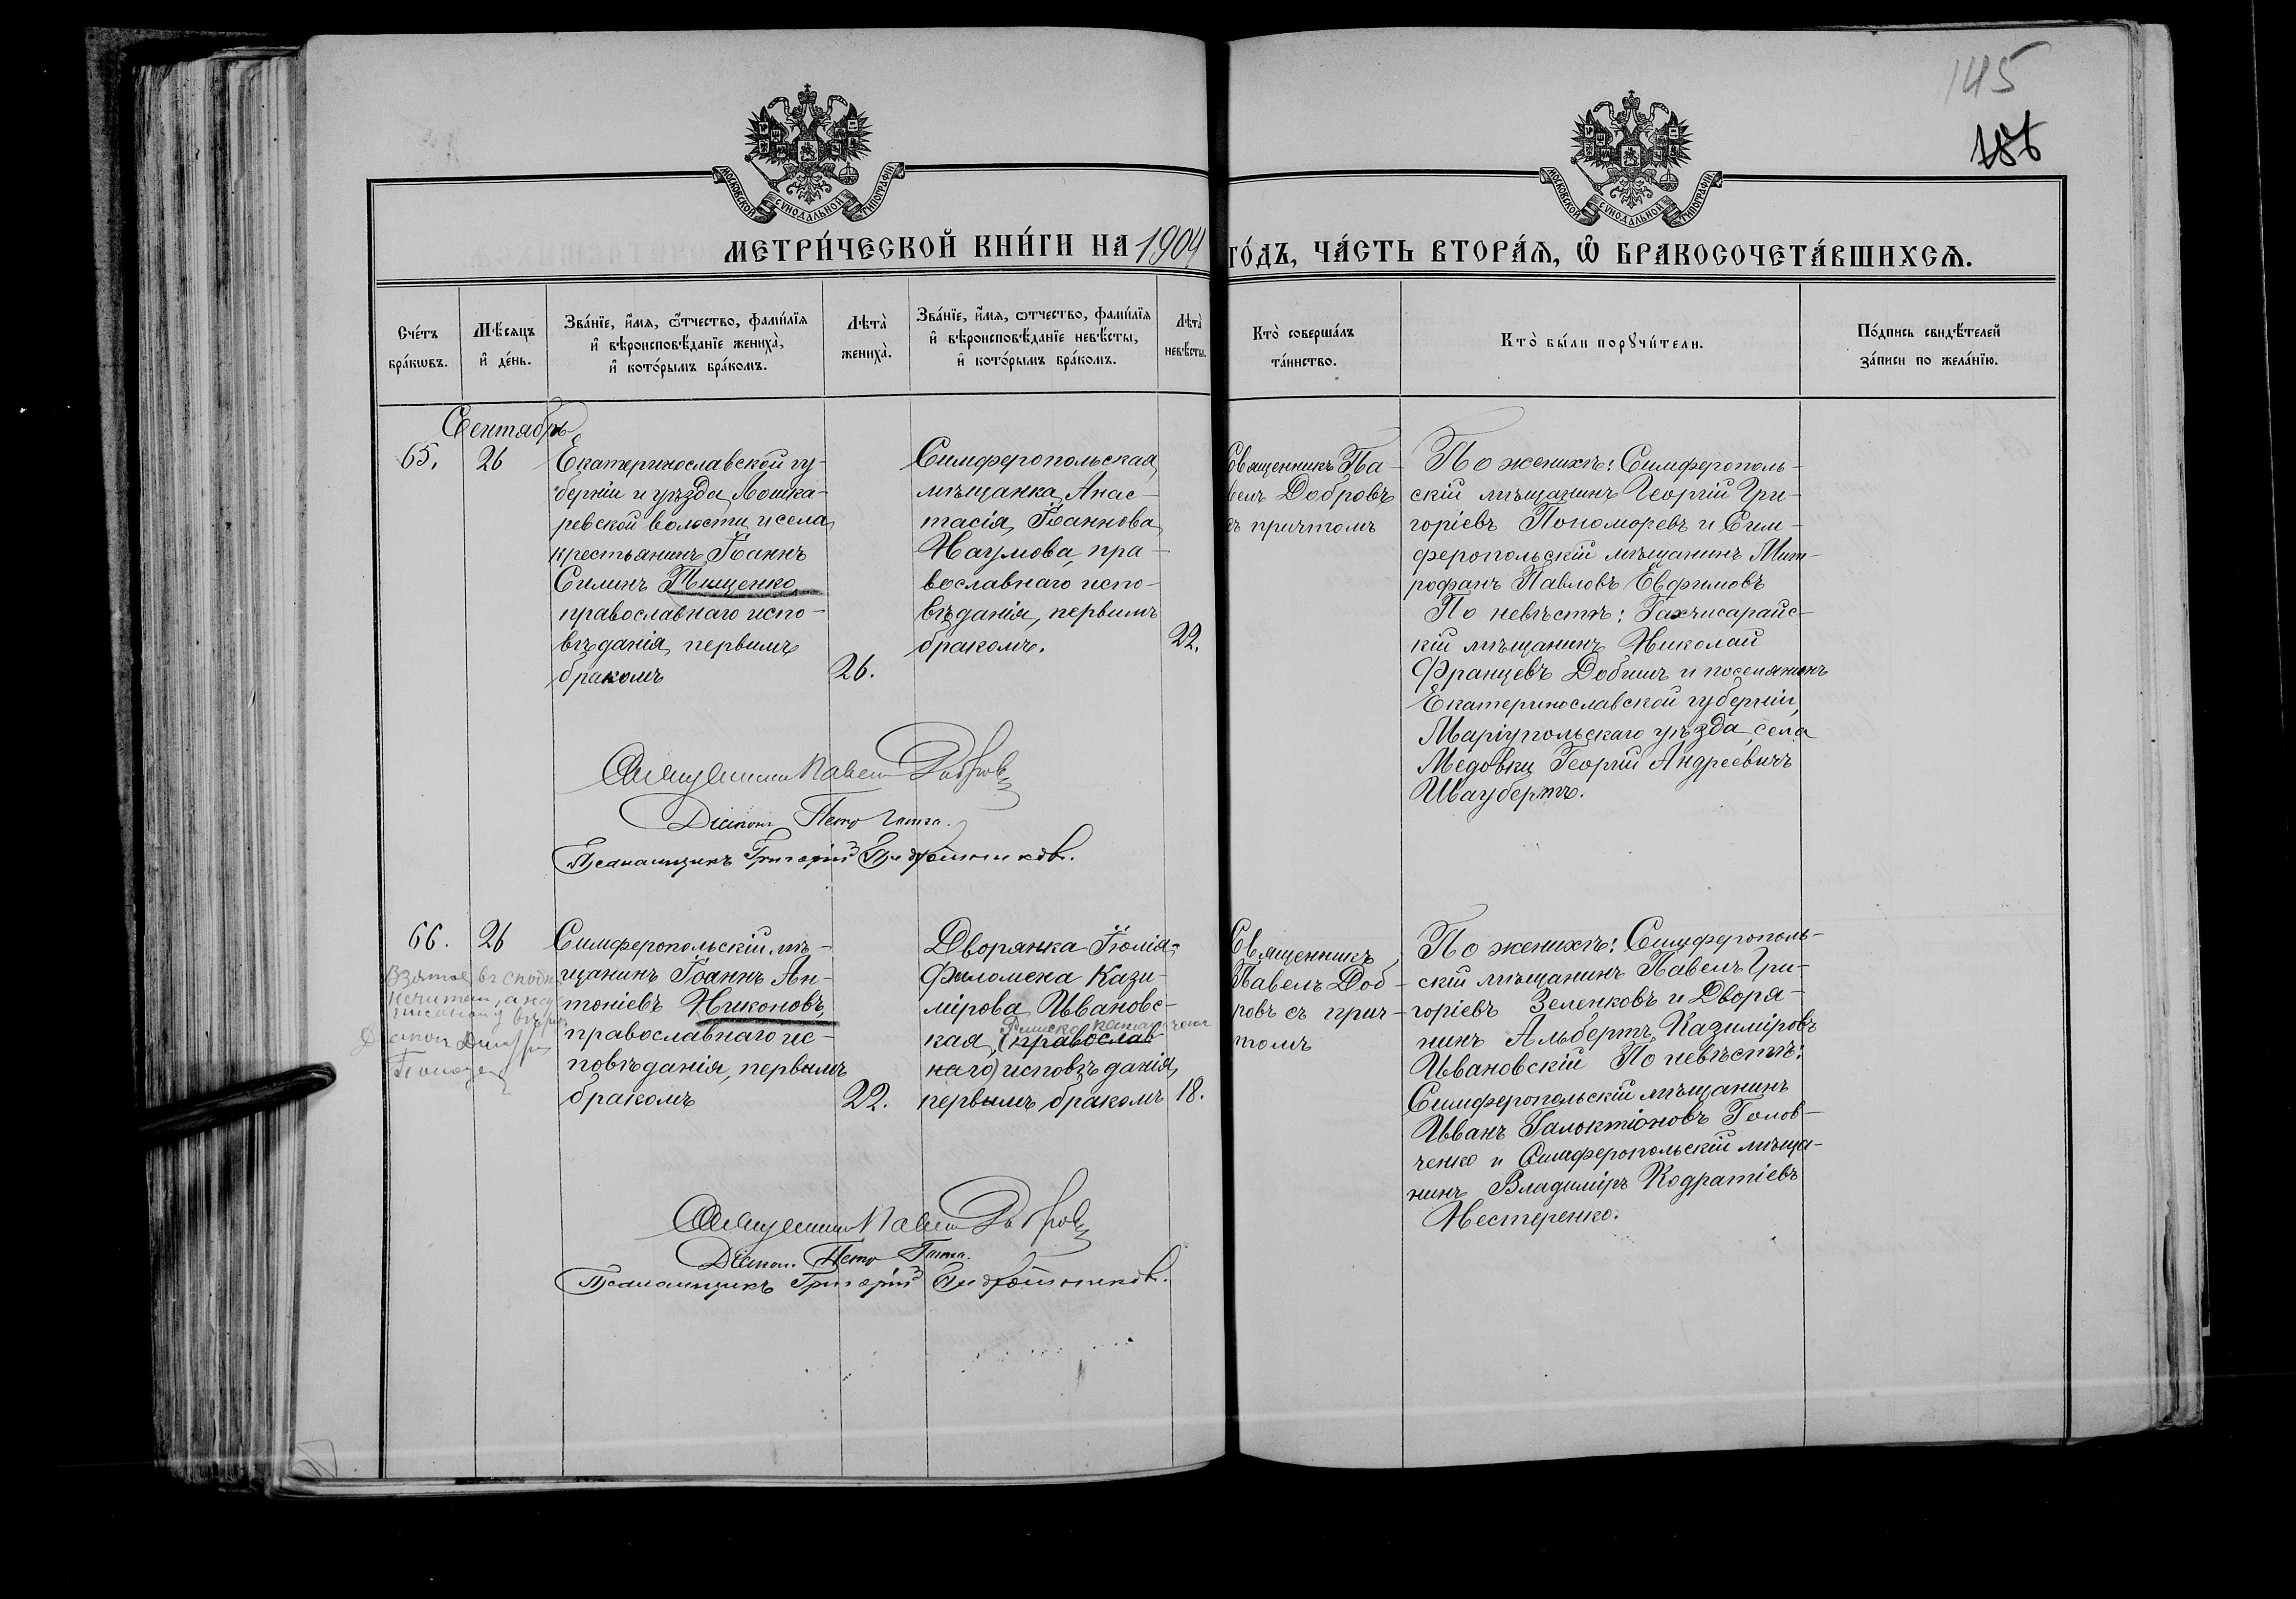 145
186
МОСКОВСКОЙ СѴНОДАЛЬНОЙ ТИПОГРАФІИ
МОСКОВСКОЙ СѴНОДАЛЬНОЙ ТИПОГРАФІИ
МЕТРИ́ЧЕСКОЙ КНИ́ГИ НА 1904 ГО́ДЪ, ЧА́СТЬ ВТОРА́Ѧ, Ѽ БРАКОСОЧЕТА́ВШИХСѦ.
Сче́тъ
бра́кѡвъ.
Мѣ́сяцъ
и҆ де́нь.
Зва́нїе, и҆́мѧ, ѻ҆́тчество, фами́лїѧ
и҆ вѣроисповѣ́данїе жениха̀,
и҆ кото́рымъ бра́комъ.
Лѣта̀
жениха̀.
Зва́нїе, и҆́мѧ, ѻтчество, фами́лїѧ
и҆ вѣроисповѣ́данїе невѣ́сты,
и҆ кото́рымъ бра́комъ.
Лѣта̀
невѣ́сты.
Кто̀ соверша́лъ
та́инство.
Кто̀ бы́ли порꙋчи́тели.
По́дпись свидѣ́телей
за́писи по жела́нїю.
Сентябрь
65.
26
Екатеринославской гу-
берніи и уѣзда Лошка-
ревской волости и села
крестьянинъ Іоаннъ
Силинъ Тищенко,
православнаго испо-
вѣданія, первымъ
бракомъ
26.
Симферопольская
мѣщанка Анас-
тасія Іоаннова
Наумова, пра-
вославнаго испо-
вѣданія, первымъ
бракомъ.
22.
Священникъ Па-
велъ Добровъ
съ причтомъ
По женихѣ: Симферополь-
скій мѣщанинъ Георгій Гри-
горіевъ Пономоревъ и Сим-
феропольскій мѣщанинъ Мит-
рофанъ Павловъ Евфимовъ
По невѣстѣ: Бахчисарайс-
кій мѣщанинъ Николай
Францевъ Добишъ и поселянинъ
Екатеринославской губерніи,
Маріупольскаго уѣзда, села
Медовки Георгій Андреевичъ
Шаубертъ.
Священникъ Павелъ Добровъ
Діаконъ Петр
Псаломщикъ Григорій
66.
26
Симферопольскій мѣ-
щанинъ Іоаннъ Ан-
тоніевъ Никоновъ,
православнаго ис-
повѣданія, первымъ
бракомъ
22.
Взятое въ скобки
не читать, а на
Діакон
Дворянка Юлія-
Филомена Кази-
мірова Ивановс-
римско-католическаго
кая, (православ
наго) исповѣданія,
первымъ бракомъ
18.
Священникъ
Павелъ Доб-
ровъ съ прич-
томъ
По женихѣ: Симферополь-
скій мѣщанинъ Павелъ Гри-
горіевъ Зеленковъ и Дворя-
нинъ Альбертъ Казиміровъ
Ивановскій По невѣстѣ:
Симферопольскій мѣщанинъ
Иванъ Галоктіоновъ Голов-
ченко и Симферопольскій мѣща-
нинъ Владиміръ Кодратіевъ
Нестеренко.
Священникъ Павелъ Добровъ
Діакон Петр
Псаломщикъ Григорій